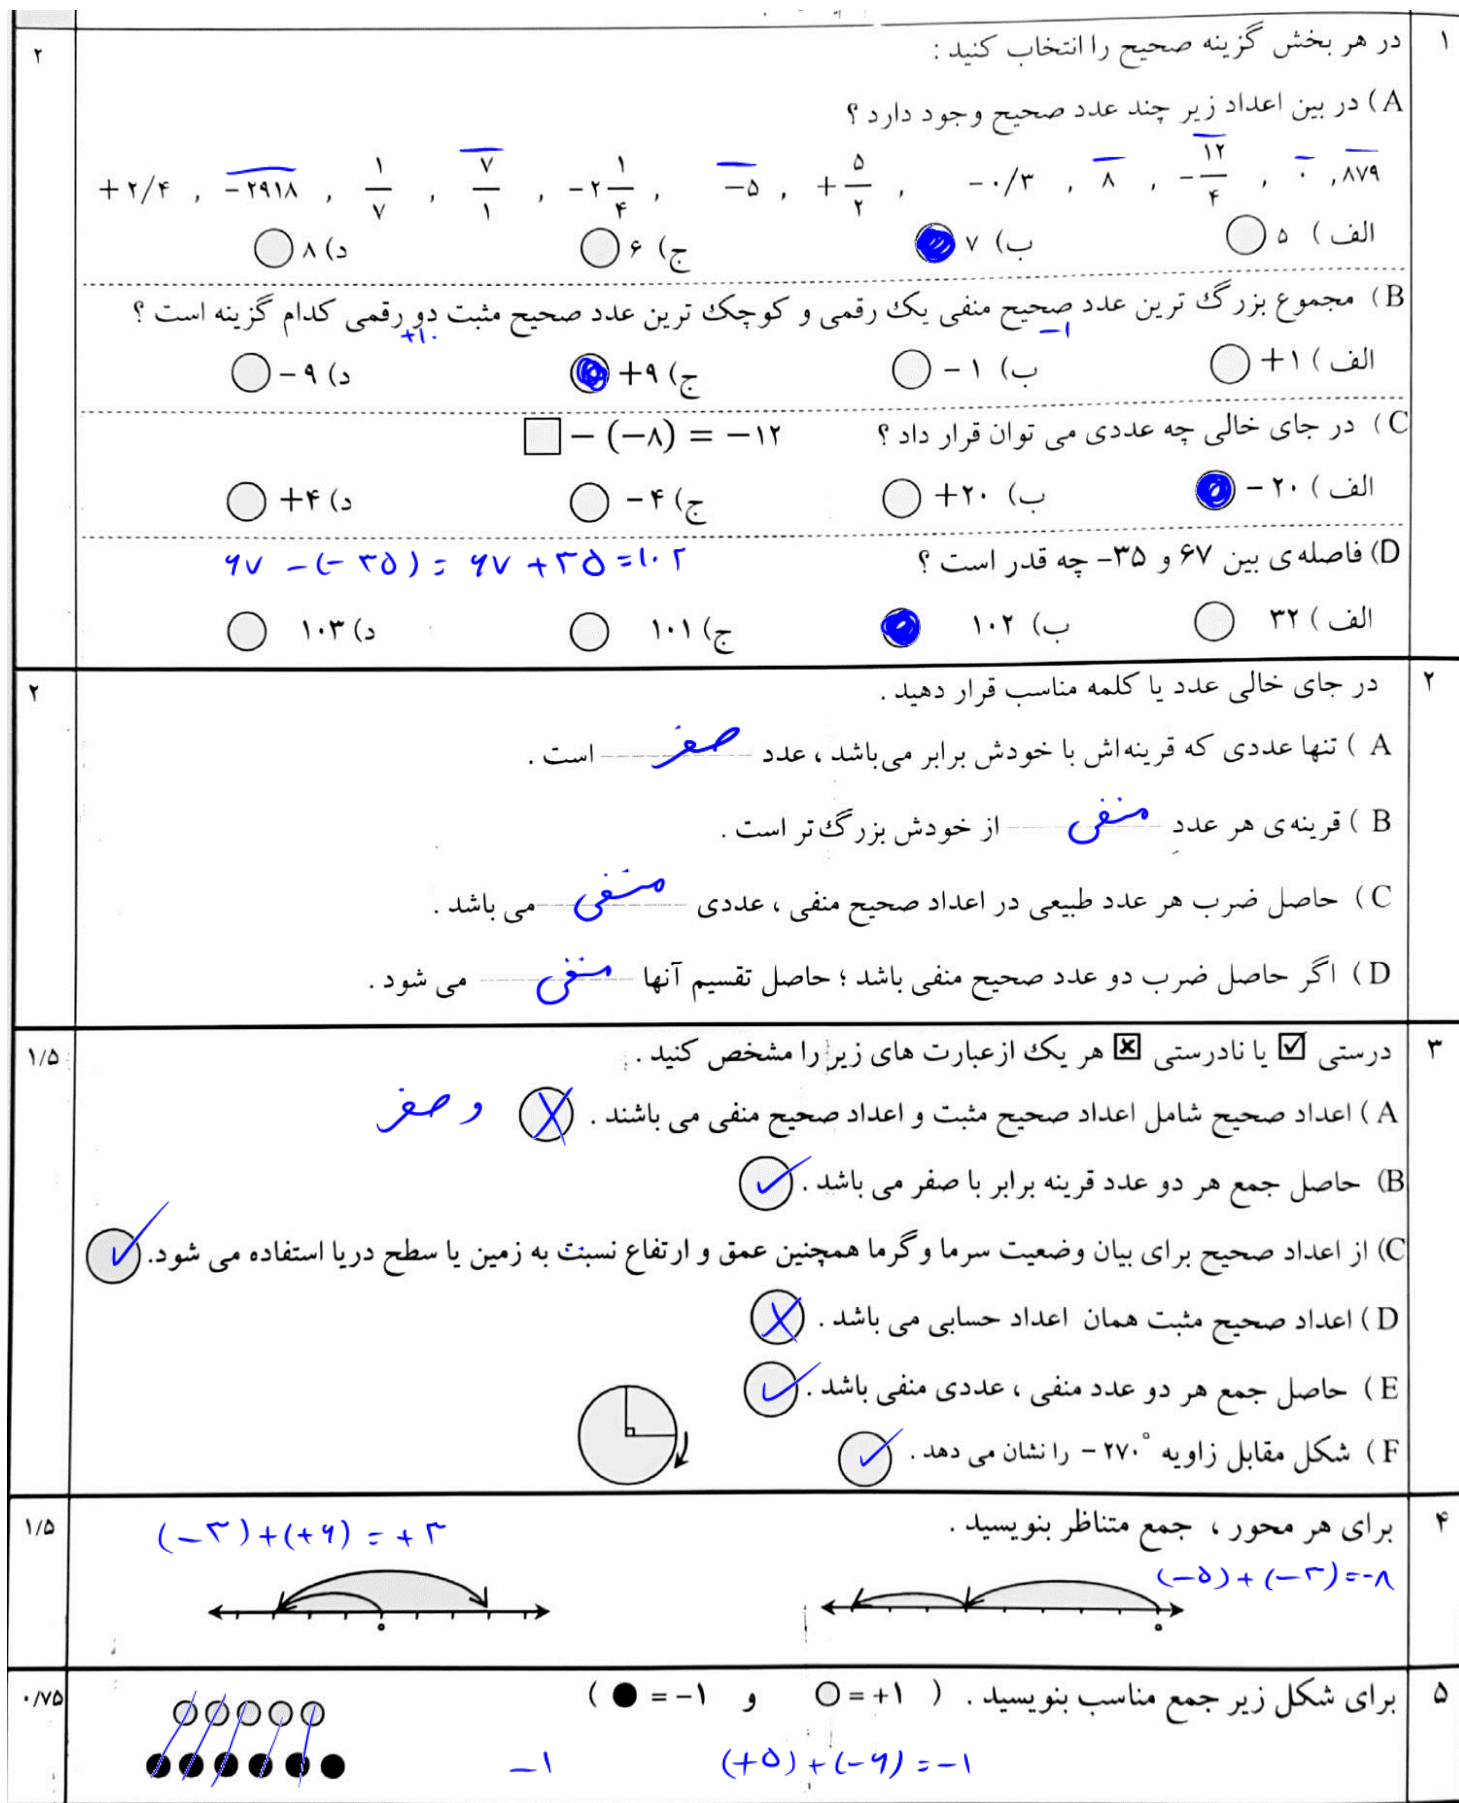 ۱ در هر بخش گزینه صحیح را انتخاب کنید : ۲
A) در بین اعداد زیر چند عدد صحیح وجود دارد ؟
۸۷۹ , ۰ , -۱۲/۴ , ۸ , -۰/۳ , +۵/۲ , -۵ , -۲ ۱/۴ , ۷/۱ , ۱/۷ , -۲۹۱۸ , +۲/۴
الف ) ۵ ب) ۷ ج) ۶ د) ۸
B) مجموع بزرگ ترین عدد صحیح منفی یک رقمی و کوچک ترین عدد صحیح مثبت دو رقمی کدام گزینه است ؟
-۱ +۱۰
الف ) +۱ ب) -۱ ج) +۹ د) -۹
C) در جای خالی چه عددی می توان قرار داد ؟ □ - (-۸) = -۱۲
الف ) -۲۰ ب) +۲۰ ج) -۴ د) +۴
D) فاصله ی بین ۶۷ و ۳۵- چه قدر است ؟ ۶۷ - (-۳۵) = ۶۷ + ۳۵ = ۱۰۲
الف ) ۳۲ ب) ۱۰۲ ج) ۱۰۱ د) ۱۰۳
۲ در جای خالی عدد یا کلمه مناسب قرار دهید . ۲
A ) تنها عددی که قرینه اش با خودش برابر می باشد ، عدد صفر است .
B ) قرینه ی هر عددِ منفی از خودش بزرگ تر است .
C ) حاصل ضرب هر عدد طبیعی در اعداد صحیح منفی ، عددی منفی می باشد .
D ) اگر حاصل ضرب دو عدد صحیح منفی باشد ؛ حاصل تقسیم آنها منفی می شود .
۳ درستی ☑ یا نادرستی ☒ هر یک ازعبارت های زیر را مشخص کنید . ۱/۵
A ) اعداد صحیح شامل اعداد صحیح مثبت و اعداد صحیح منفی می باشند . ✗ و صفر
B) حاصل جمع هر دو عدد قرینه برابر با صفر می باشد . ✓
C) از اعداد صحیح برای بیان وضعیت سرما و گرما همچنین عمق و ارتفاع نسبت به زمین یا سطح دریا استفاده می شود. ✓
D ) اعداد صحیح مثبت همان اعداد حسابی می باشد . ✗
E ) حاصل جمع هر دو عدد منفی ، عددی منفی باشد . ✓
F ) شکل مقابل زاویه ۲۷۰° - را نشان می دهد . ✓
۴ برای هر محور ، جمع متناظر بنویسید . ۱/۵
(-۵) + (-۳) = -۸
(-۳) + (+۶) = +۳
۰ ۰
۵ برای شکل زیر جمع مناسب بنویسید . ( ○ = +۱ و ● = -۱ ) ۰/۷۵
(+۵) + (-۶) = -۱
-۱